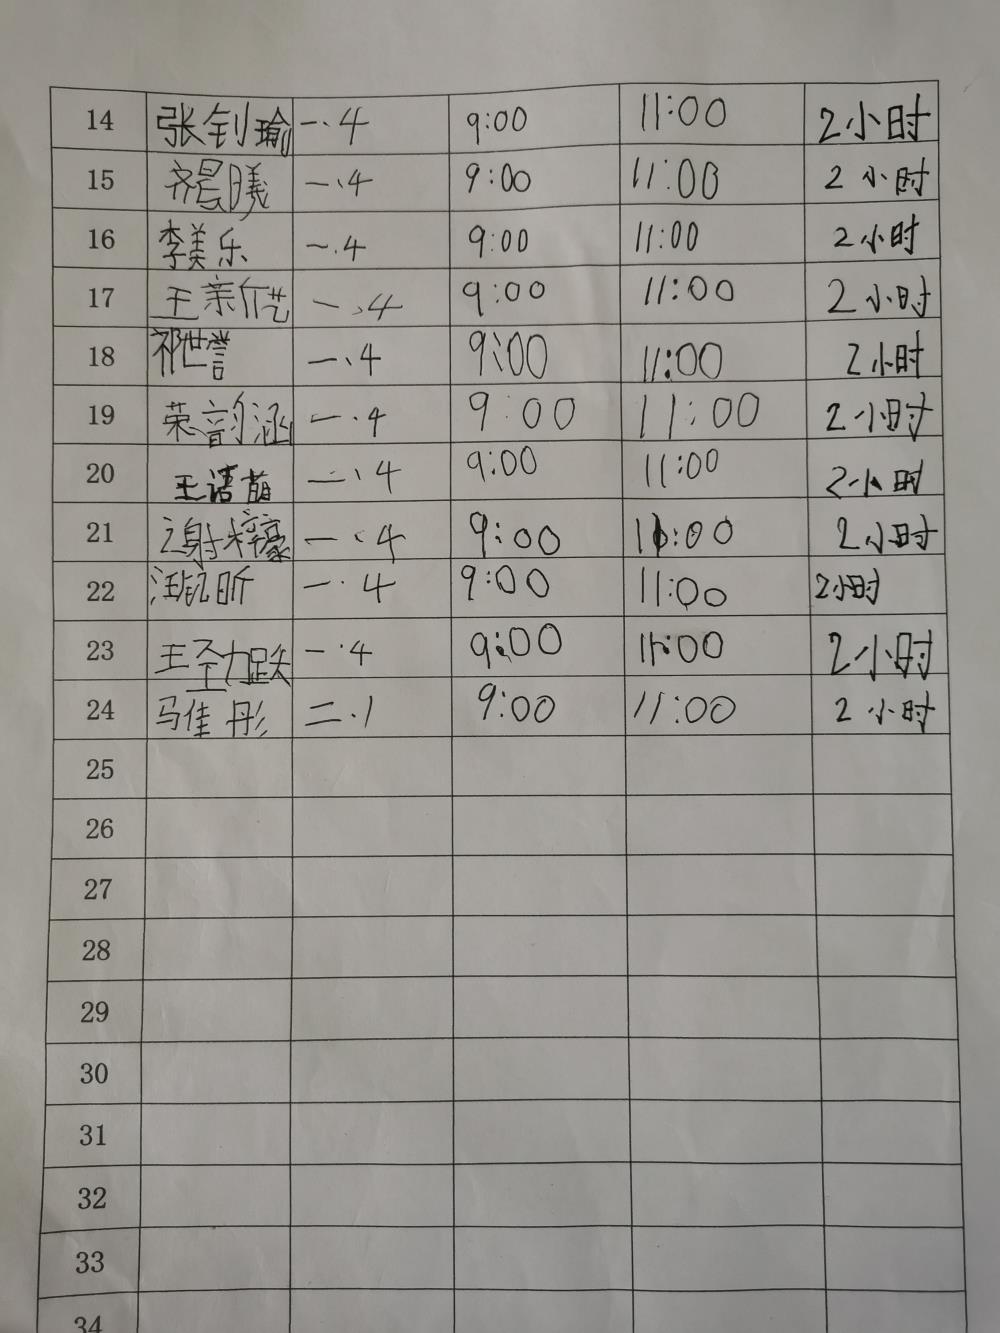 14 张钊瑜 一.4 9:00 11:00 2小时
15 齐晨曦 一、4 9:00 11:00 2小时
16 李美乐 一.4 9:00 11:00 2小时
17 王亲 一、4 9:00 11:00 2小时
18 祁世誉 一、4 9:00 11:00 2小时
19 荣韵涵 一.4 9:00 11:00 2小时
20 王语萌 一、4 9:00 11:00 2小时
21 谢梓豪 一、4 9:00 11:00 2小时
22 汪凯昕 一.4 9:00 11:00 2小时
23 王 一.4 9:00 11:00 2小时
24 马佳彤 二.1 9:00 11:00 2小时
25
26
27
28
29
30
31
32
33
34